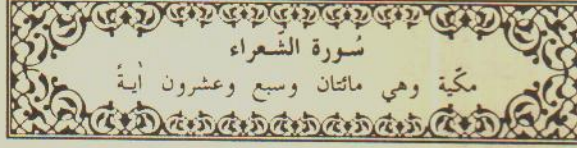 سُورة الشعراء
مكّية وهي مائتان وسبع وعشرون اٰيةً